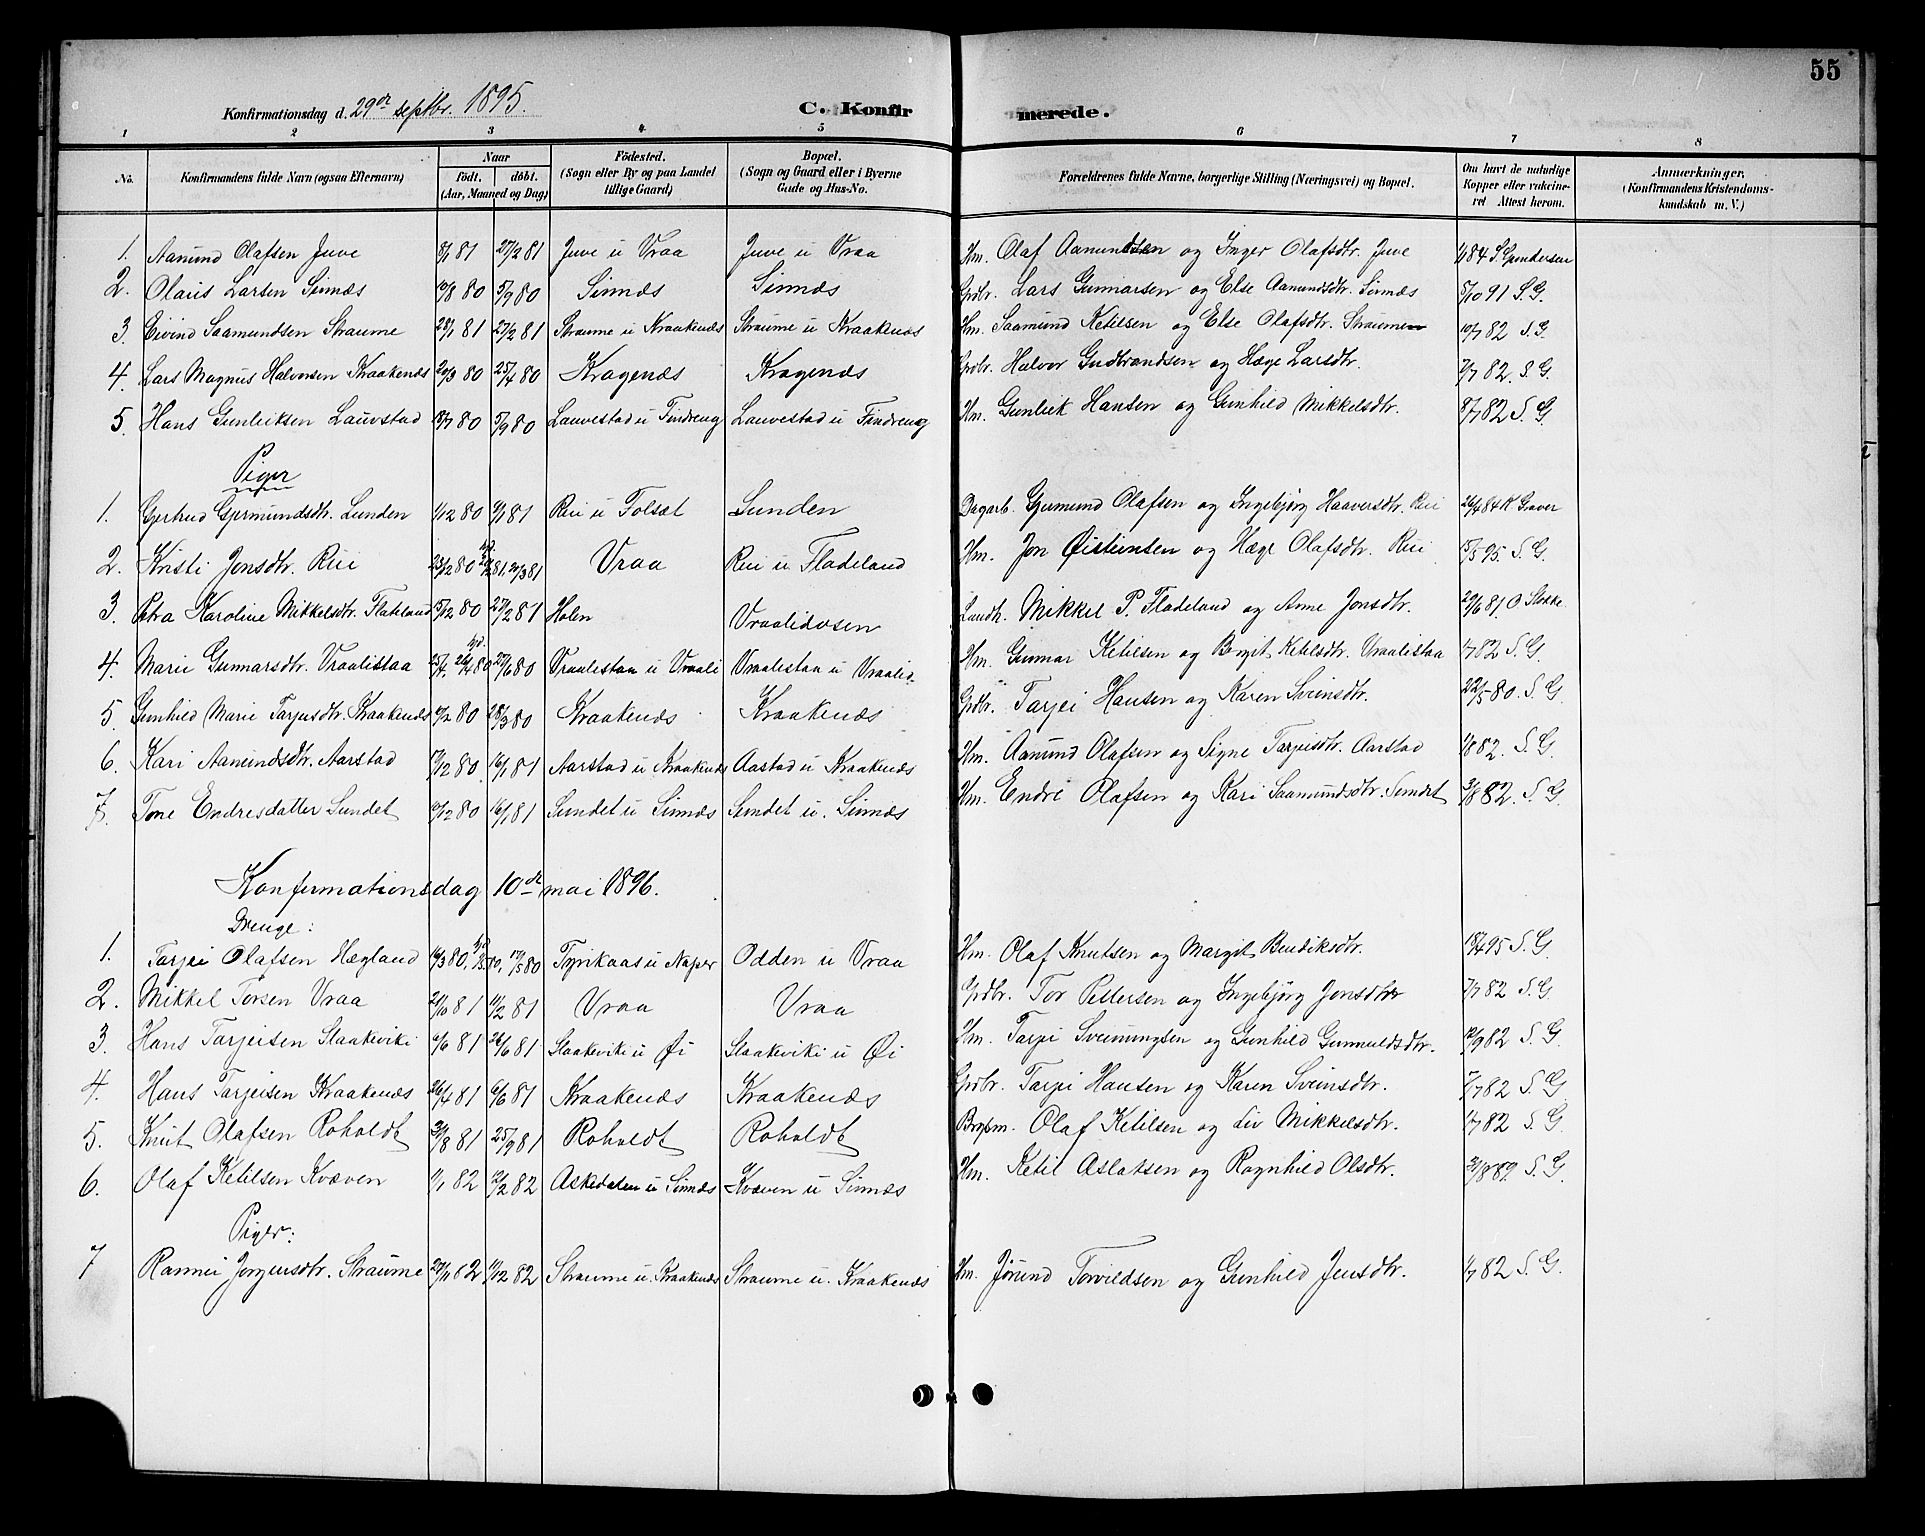 55
Konfirmationsdag d. 29de septbr. 1895. C. Konfirmerede.
1 2 3 4 5 6 7 8
No. Konfirmandens fulde Navn (ogsaa Efternavn) Naar födt. döbt. (Aar, Maaned og Dag) Födested. (Sogn eller By og paa Landet tillige Gaard) Bopæl. (Sogn og Gaard eller i Byerne Gade og Hus-No. Forældrenes fulde Navne, borgerlige Stilling (Næringsvei) og Bopæl. Om havt de naturlige Kopper eller vakcineret Attest herom. Anmærkninger, (Konfirmandens Kristendomskundskab m. V.)
1. Aanund Olafsen Juve 8/1 81 27/2 81 Juve u Vraa Juve u Vraa Hm. Olaf Aamundsen og Inger Olafsdtr. Juve 84 S Gundersen
2. Olaus Larsen Sinnæs 10/8 80 5/9 80 Sinnæs Sinnæs Grdbr. Lars Gunnarsen og Else Aanundsdtr. Sinnæs 5/10 91 S. G.
3. Eivind Saamundsen Straume 23/1 81 27/2 81 Straume u Kraakenæs Straume u Kraakenæs Hm. Saamund Ketilsen og Else Olafsdtr. Straume 19/7 82 S. G.
4. Lars Magnus Halvorsen Kraakenæs 20/3 80 25/4 80 Kragenæs Kragenæs Grdbr. Halvor Gudbrandsen og Hæge Larsdtr. 7/7 82. S. G.
5. Hans Gunleiksen Lauvstad 18/7 80 5/9 80 Lauvestad u Findreng Lauvestad u Findreng Hm. Gunleik Hansen og Gunhild Mikkelsdtr. 8/7 82 S. G.
Piger
1. Gjertrud Gjermundsdtr. Lunden 1/12 80 9/1 81 Rui u Folsæt Lunden Dagarb. Gjermund Olafsen og Ingebjörg Haaversdtr. Rui 26/4 84 K Graver
2. Kristi Jonsdtr. Rui 23/12 80 20/3 81 Vraa Rui u Fladeland Hm. Jon Øisteinsen og Hæge Olafsdtr. Rui 15/5 95. S. G.
3. Petra Karoline Mikkelsdtr. Flateland 15/12 80 27/2 81 Holen Vraaliosen Landh. Mikkel P. Fladeland og Anne Jonsdtr. 29/6 81 O. Stokke
4. Marie Gunnarsdtr. Vraalistaa 25/4 80 27/6 80 Vraalistaa u Vraali Vraalestaa u Vraalid. Hm. Gunnar Ketilsen og Bergit Ketilsdtr. Vraalistaa 1/7 82 S. G.
5. Gunhild Marie Tarjeisdtr. Kraakenæs 9/2 80 28/3 80 Kraakenæs Kraakenæs Grdbr. Tarjei Hansen og Karen Sveinsdtr. 22/5 80. S. G
6. Kari Aanundsdtr. Aarstad 17/12 80. 16/1 81 Aarstad u Kraakenæs Aastad u Kraakenæs Hm. Aanund Olafsen og Signe Tarjeisdtr. Aarstad 1/8 82. S. G.
7. Tone Endresdatter Sundet 9/12 80 16/1 81 Sundet u Sinnæs Sundet u. Sinnæs Hm. Endre Olafsen og Kari Saamundsdtr. Sundet 3/8 82. S. G.
Konfirmationsdag 10de mai 1896.
Drenge:
1. Tarjei Olafsen Hægland 16/3 80, 17/5 80 Tyrikaas u Naper Odden u Vraa Hm. Olaf Knutsen og Margit Bendiksdtr. 18/4 95 S. G.
2. Mikkel Torsen Vraa 21/10 81 11/12 81 Vraa Vraa Grdbr. Tor Pettersen og Ingebjörg Jonsdtr 7/7 82 S. G.
3. Hans Tarjeisen Slaakeviki 6/6 81 26/6 81 Slaakeviki u Øi Slaakeviki u Øi Hm. Tarjei Sveinungsen og Gunhild Gunnuldsdtr. 12/9 82 S. G.
4. Hans Tarjeisen Kraakenæs 26/4 81 6/6 81 Kraakenæs Kraakenæs Grdbr. Tarjei Hansen og Karen Sveinsdtr. 7/7 82 S. G
5. Knut Olafsen Roholdt 31/8 81 25/9 81 Roholdt Roholdt Olaf Ketilsen og Liv Mikkelsdtr. 1/7 82 S. G.
6. Olaf Ketilsen Kvæven 9/1 82 12/2 82 Askedalen u Sinnæs Kvæven u Sinnæs Hm. Ketil Aslaksen og Ragnhild Olsdtr. 31/8 82 S. G.
Piger:
7 Rannei Jorgensdtr. Straume 27/11 82 11/12 82 Straume u. Kraakenæs Straume u. Kraakenæs Hm. Jörund Torvildsen og Gunhild Jensdtr. 1/7 82 S. G.